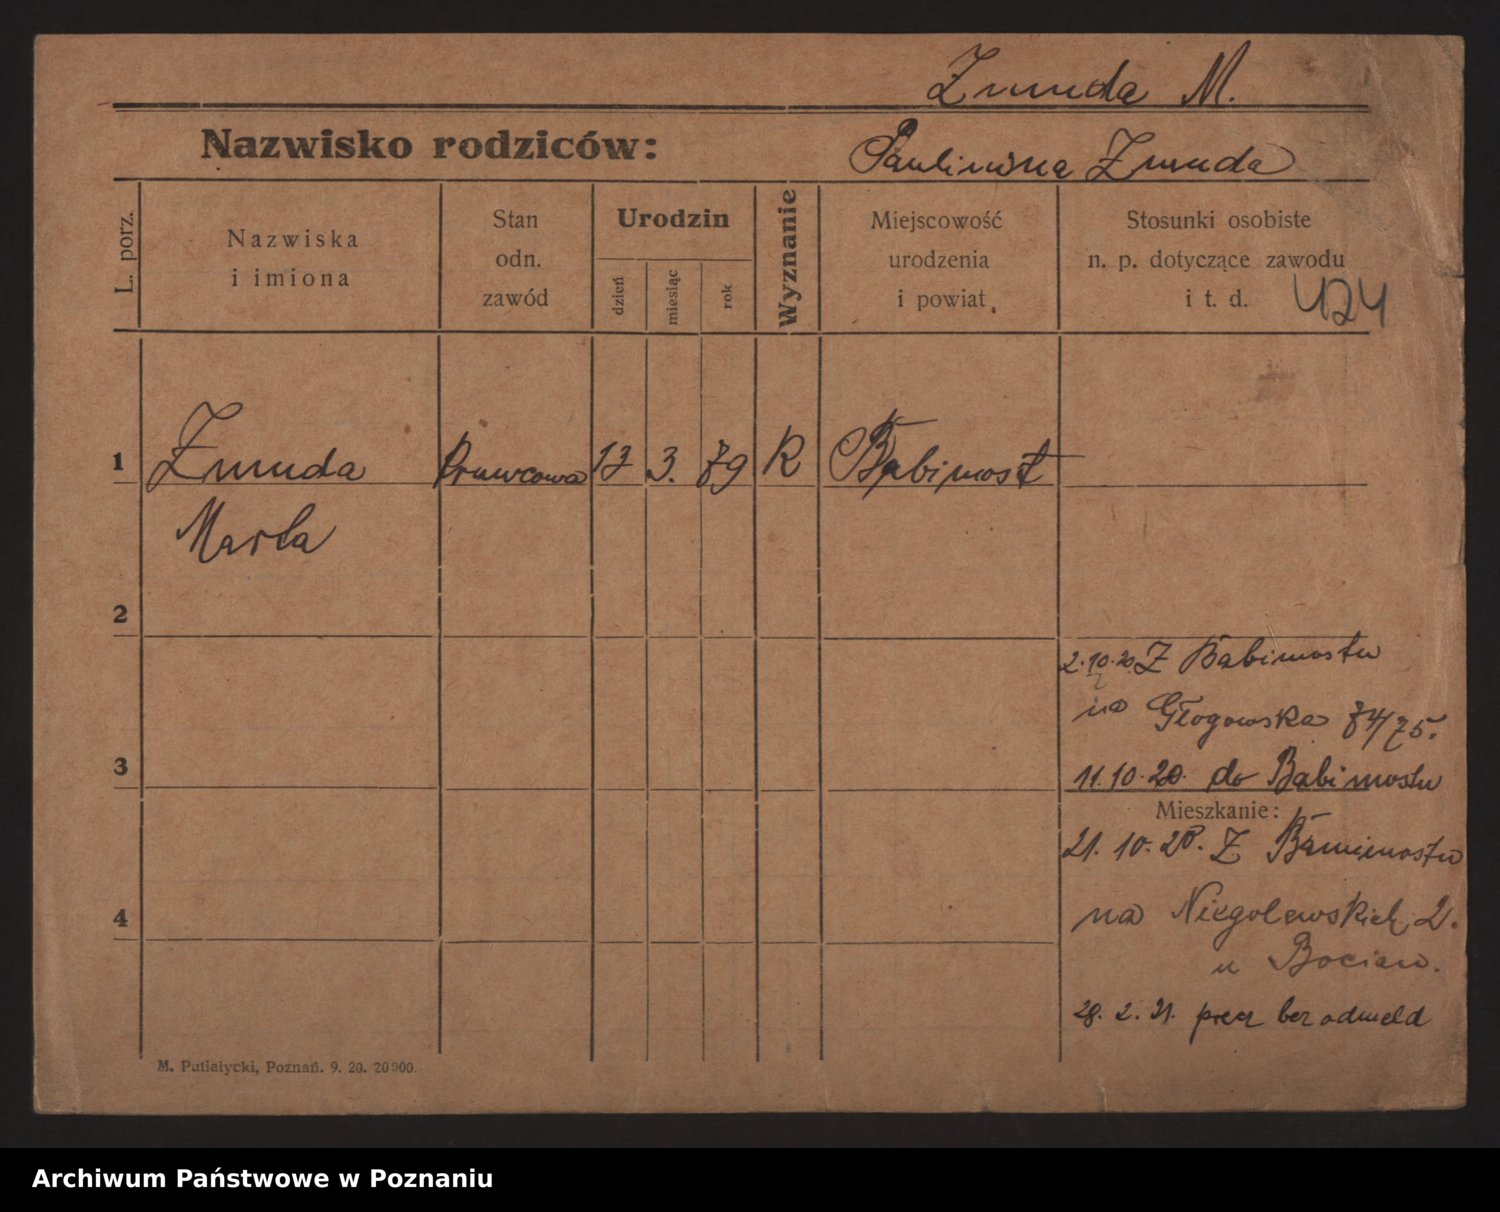 Zmuda M.
Nazwisko rodziców:
Zmuda
L. porz.
Nazwiska
i imiona
Stan
odn.
zawód
Urodzin
dzień
miesiąc
rok
Wyznanie
Miejscowość
urodzenia
i powiat
Stosunki osobiste
n. p. dotyczące zawodu
i t. d.
424
1 Zmuda 3. 79 R Babimost
Marta
2
2.10.20. Z Babimostu
na Głogowska 74/75.
3
11.10.20. do Babimostu
Mieszkanie:
21. 10. 20. Z
4
na Niegolewskich 2.
u Bocian.
28. 2. 21. precz bez odmeld
M. Putiatycki, Poznań. 9. 20. 20000.
Archiwum Państwowe w Poznaniu